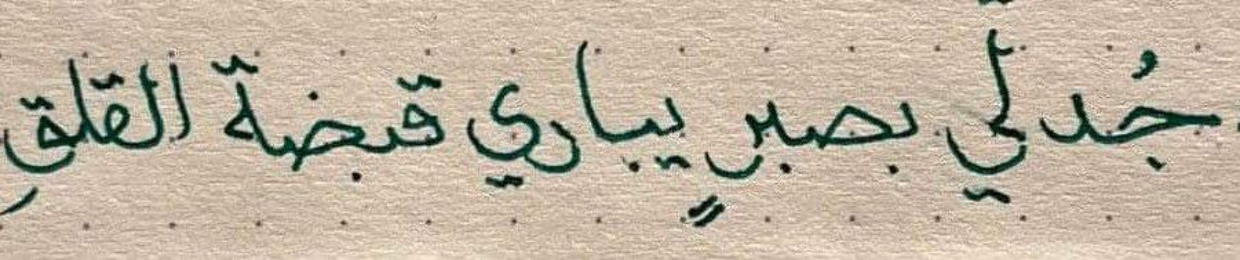 جُد لي بصبرٍ يباري قبضة القلقِ